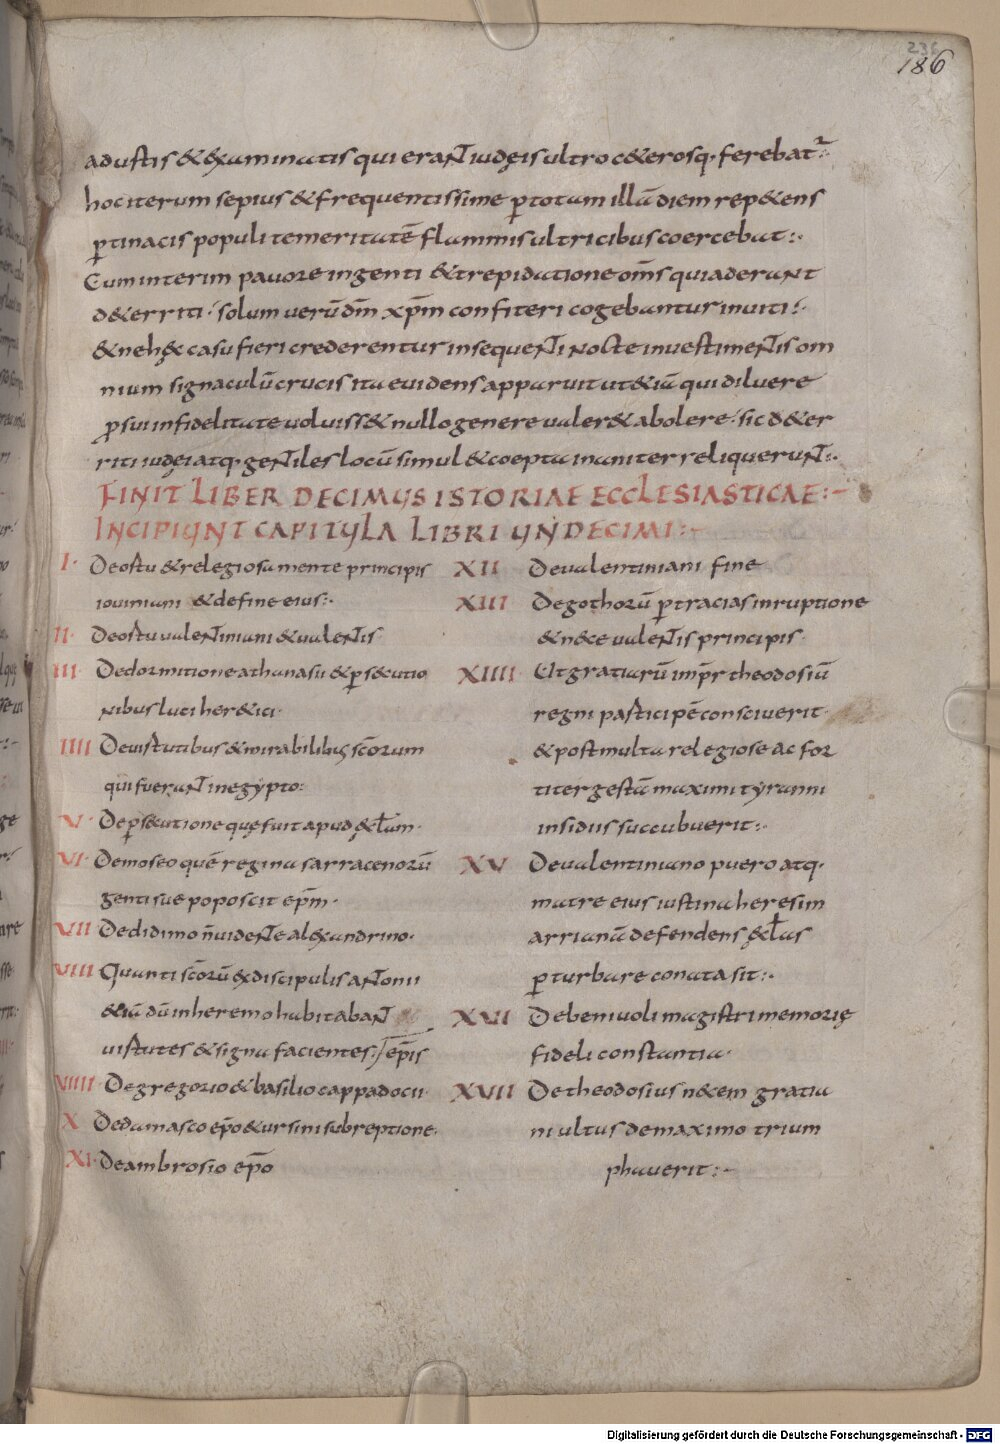 236
186
adustis & examinatis qui erant iudęis ultro c&erosq· ferebat᷑:
hoc iterum sepius & frequentissime ꝑ totam illā diem rep&ens
ꝑtinacis populi temeritatē flammis ultricibus coercebat:·
Cum interim pauore ingenti & trepidatione om̄s qui aderant
d&erriti· solum uerū dm̄ xp̄m confiteri cogebantur inuiti:·
& ne hęc casu fieri crederentur insequenti nocte in uestimentis om
nium signaculū crucis ita euidens apparuit ut &iā qui diluere
ꝓ sui infidelitate uoluiss& nullo genere valer& abolere· sic d&er
riti iudęi atq· gentiles locū simul & coepta inaniter reliquerunt:·
FINIT LIBER DECIMUS ISTORIAE ECCLESIASTICAE:-
INCIPIUNT CAPITULA LIBRI UNDECIMI:-
I· De ostu & relegiosa mente principis
iouiniani & de fine eius:·
II· De ostu ualentiniani & ualentis·
III· De dormitione athanasii & ꝑsecutio
nibus luci her&ici·
IIII De uistutibus & mirabilibus sc̄orum
qui fuerant in egypto:
V· De ꝑsecutione quę fuit apud ęd̄am·
VI· De moseo quē regina sarracenorū
genti sue poposcit ep̄m·
VII De didimo n̄ uidente alexandrino·
VIII Quanti sc̄orū ex discipulis antonii
&iā dū in heremo habitabant
uistutes & signa facientes:/ep̄is
VIIII De gregorio & basilio cappadocii·
X De damasco ep̄o & ursini subreptione·
XI· De ambrosio ep̄o
XII De ualentiniani fine
XIII De gothorū ꝑ tracias inruptione
& nece ualentis principis·
XIIII Ut gratiarū imp̄r theodosiū
regni pasticipē consciuerit·
& post multa relegiose ac for
titer gesta maximi tyranni
insidiis succubuerit:·
XV De ualentiniano puero atq·
matre eius iustina heresim
arrianā defendens ęc̄las
ꝑturbare conata sit:·
XVI De beniuoli magistri memorię
fideli constantia·
XVII De theodosius necem gratia
ni ultus de maximo trium
phauerit:-
Digitalisierung gefördert durch die Deutsche Forschungsgemeinschaft - DFG